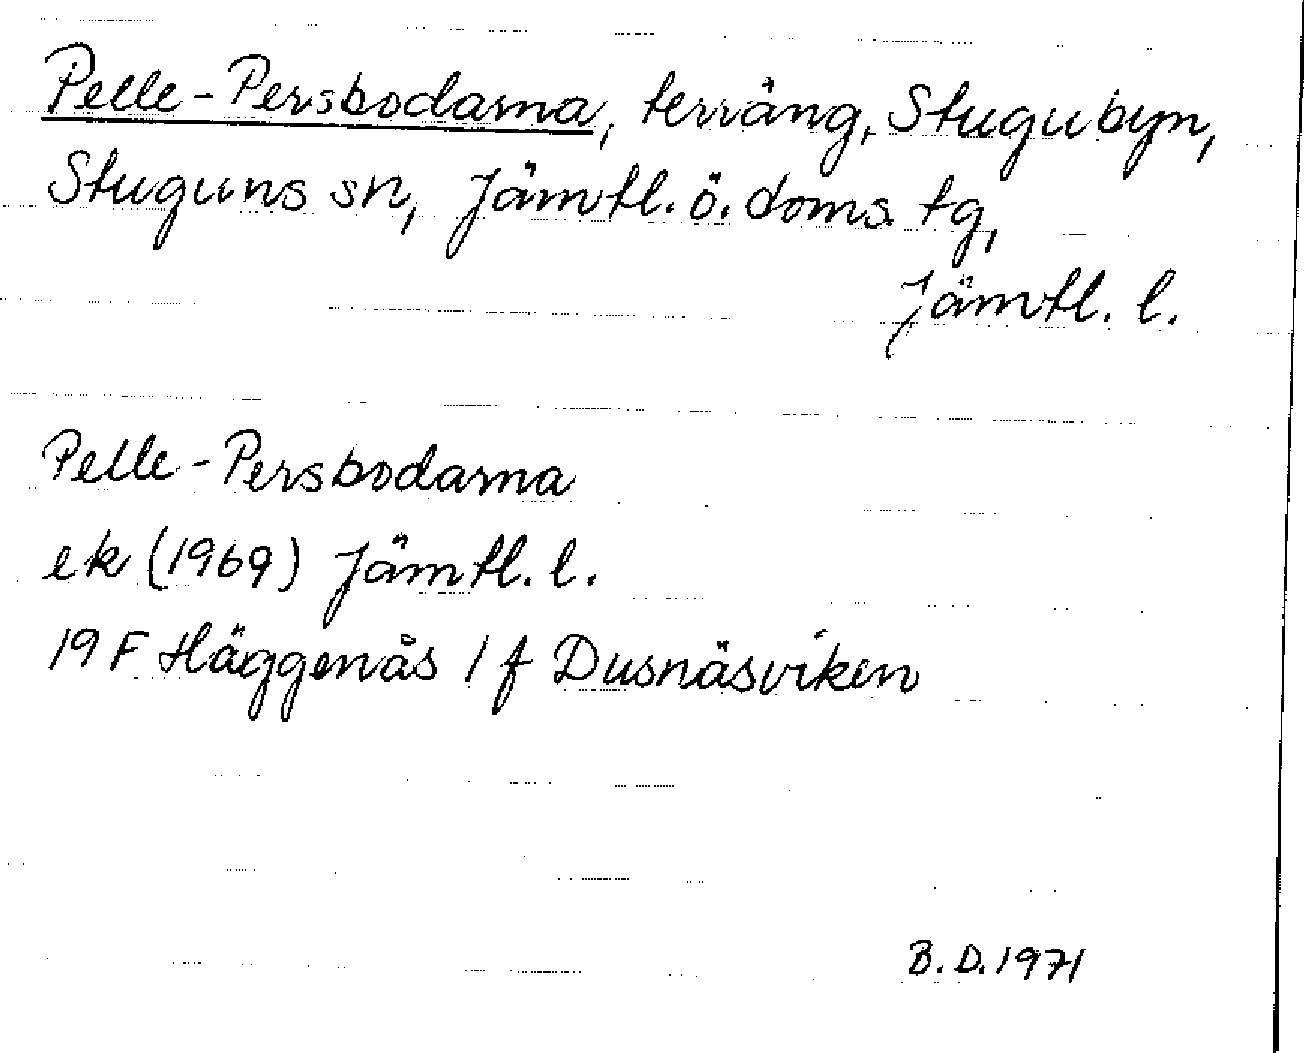 Pelle-Persbodarna, terräng, Stugubyn,
Stuguns sn, Jämtl. ö. doms. tg,
Jämtl. l.
Pelle-Persbodarna
ek (1969) Jämtl. l.
19 F Häggenås 1 f Dusnäsviken
B.D. 1971